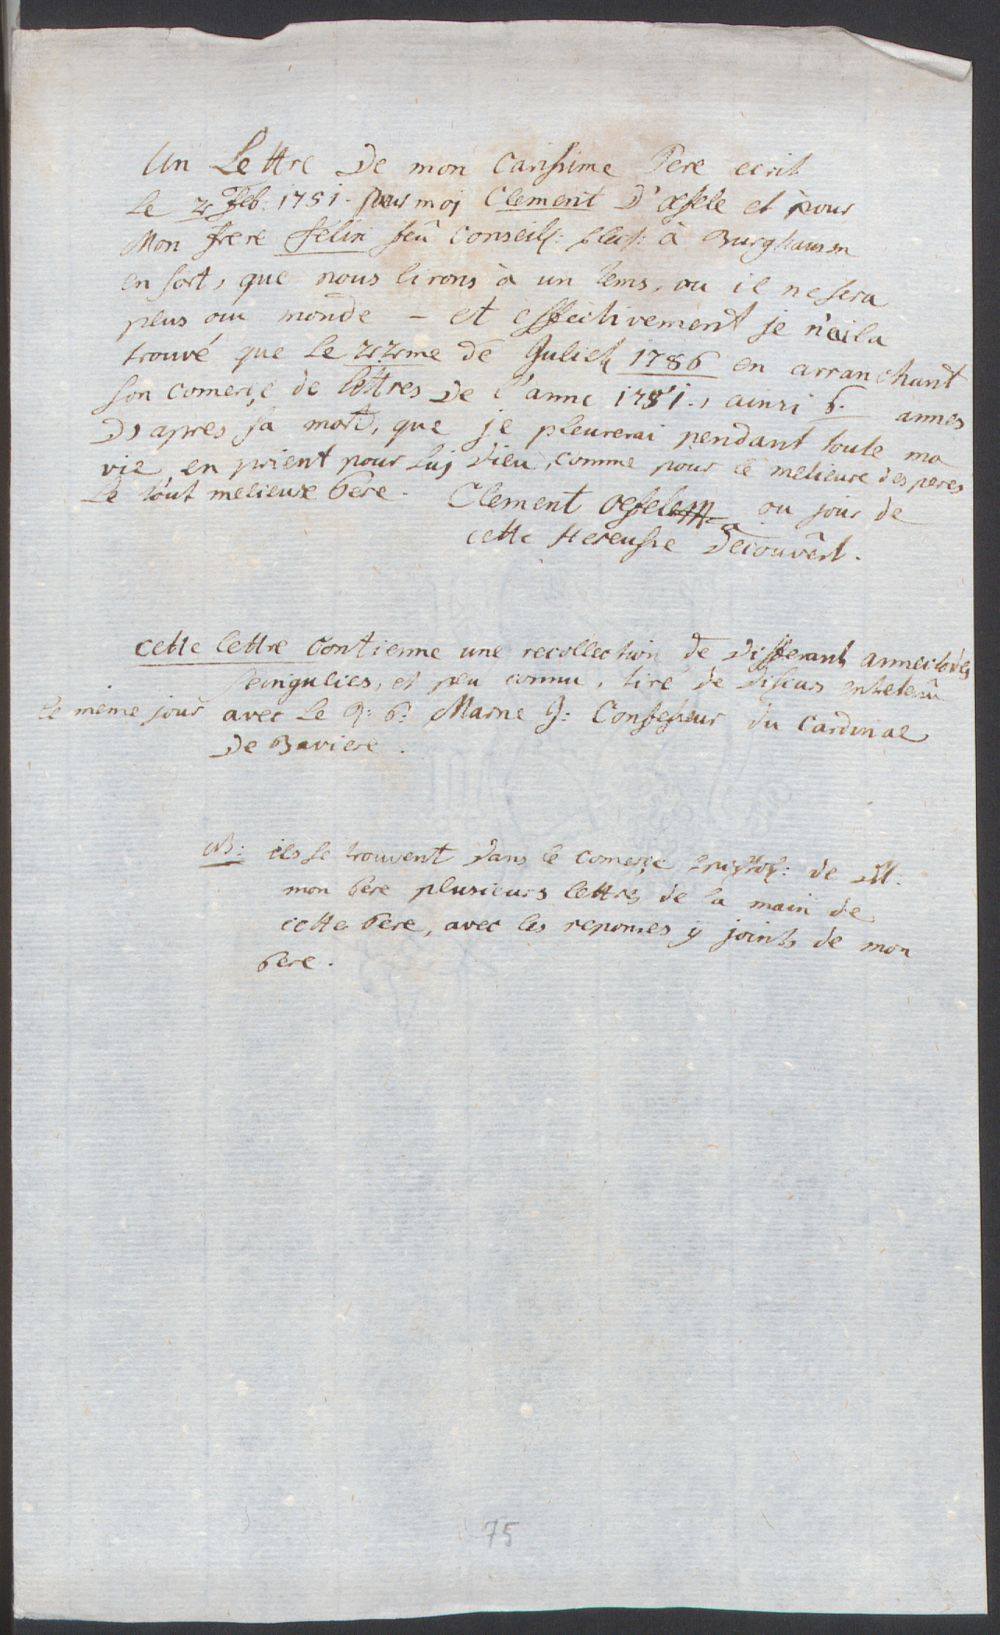 Un Lettre de mon carissime Pere ecrit
le Feb. 1751. pour moi Clement D'oefele et pour
Mon frere Felix feû Conseil: elect: à Burghausen
en sort, que nous lirons à un tems, ou il ne sera
plus au monde — et effectivement je n'ai la
trouvé que le de Juliet 1786 en arranchant
son comerçe de lettres de l'anne 1751., ainsi 6. annes
d'apres sa mort, que je pleurerai pendant toute ma
vie, en prient pour luj Dieu, comme pour le melieure des peres
le tout melieure Pere. Clement Oefele ou jour de
cette Hereusse decouvêrt.
cette lettre contienne une recollection de differant annectodes
singulies, et peu connu, tiré de discus entretenû
le même jour avec le R: P: Marne J: Confesseur du Cardinal
de Baviere.
NB: ils se trouvent dans le comerçe de M:
mon Pere plusieurs lettres de la main de
cette Pere, avec les reponses y joints de mon
Pere.
75